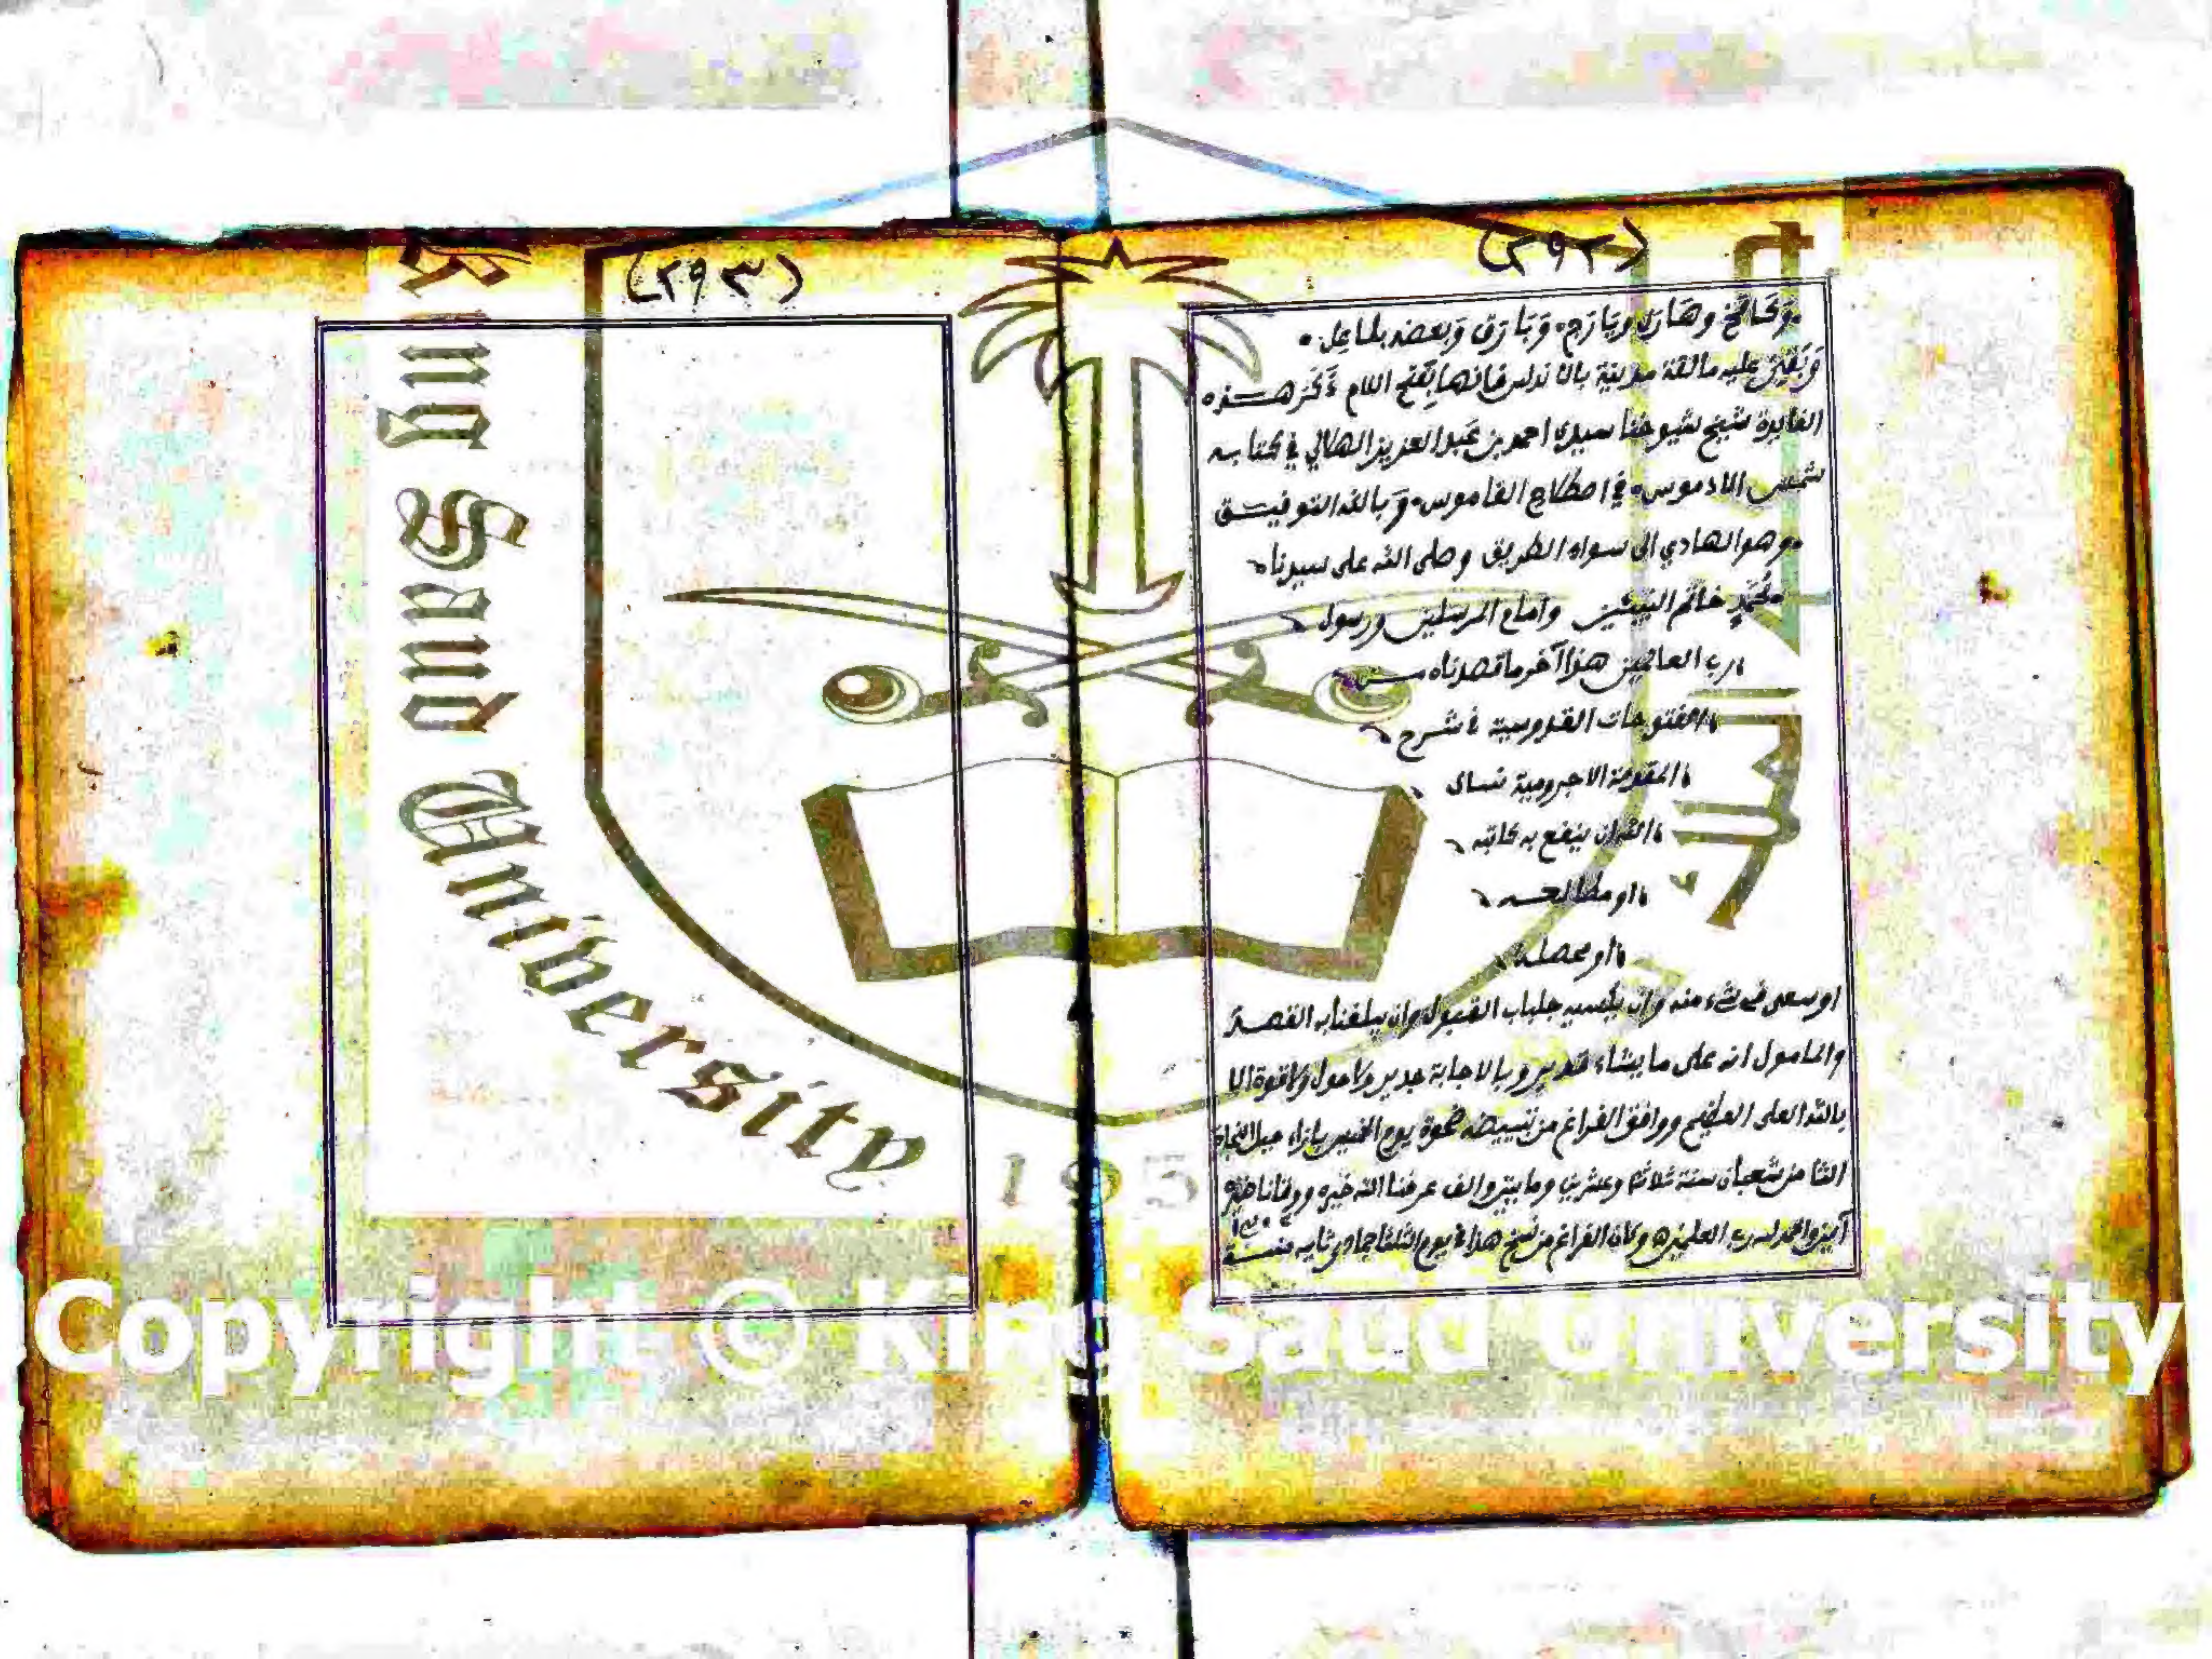 (٢٩٢)
وبعضه بلماعل
وبقي عليه مالقة مدينة بالاندلس فانها بفتح اللام ذكر هذه
الفايدة شيخ شيوخنا سيدي احمد بن عبد العزيز الهلالي في كتابه
شمس الادموس في اصطلاح القاموس وبالله التوفيق
وهو الهادي الى سواء الطريق وصلى الله على سيدنا
محمد خاتم النبيئين وامام المرسلين ورسول
رب العالمين هذا آخر ما قصدناه من
الفتوحات القدوسية في شرح
المقدمة الاجرومية نسال
الله ان ينفع به كاتبه
او مطالعه
او محصله
او سعى في شيء منه وان يلبسه جلباب القبول وان يبلغنا به القصد
والمامول انه على ما يشاء قدير وبالاجابة جدير ولا حول ولا قوة الا
بالله العلي العظيم ووافق الفراغ من تبييضه ضحوة يوم الخميس بازاء جبل
شعبان سنة ثلاثة وعشرين ومايتين والف عرفنا الله خيره ووقانا
آمين والحمد لله رب العلمين وكان الفراغ من نسخ هذا في يوم الثلثا جمادي ثانيه سنة
(٢٩٣)
King Saud University
195
Copyright © King Saud University